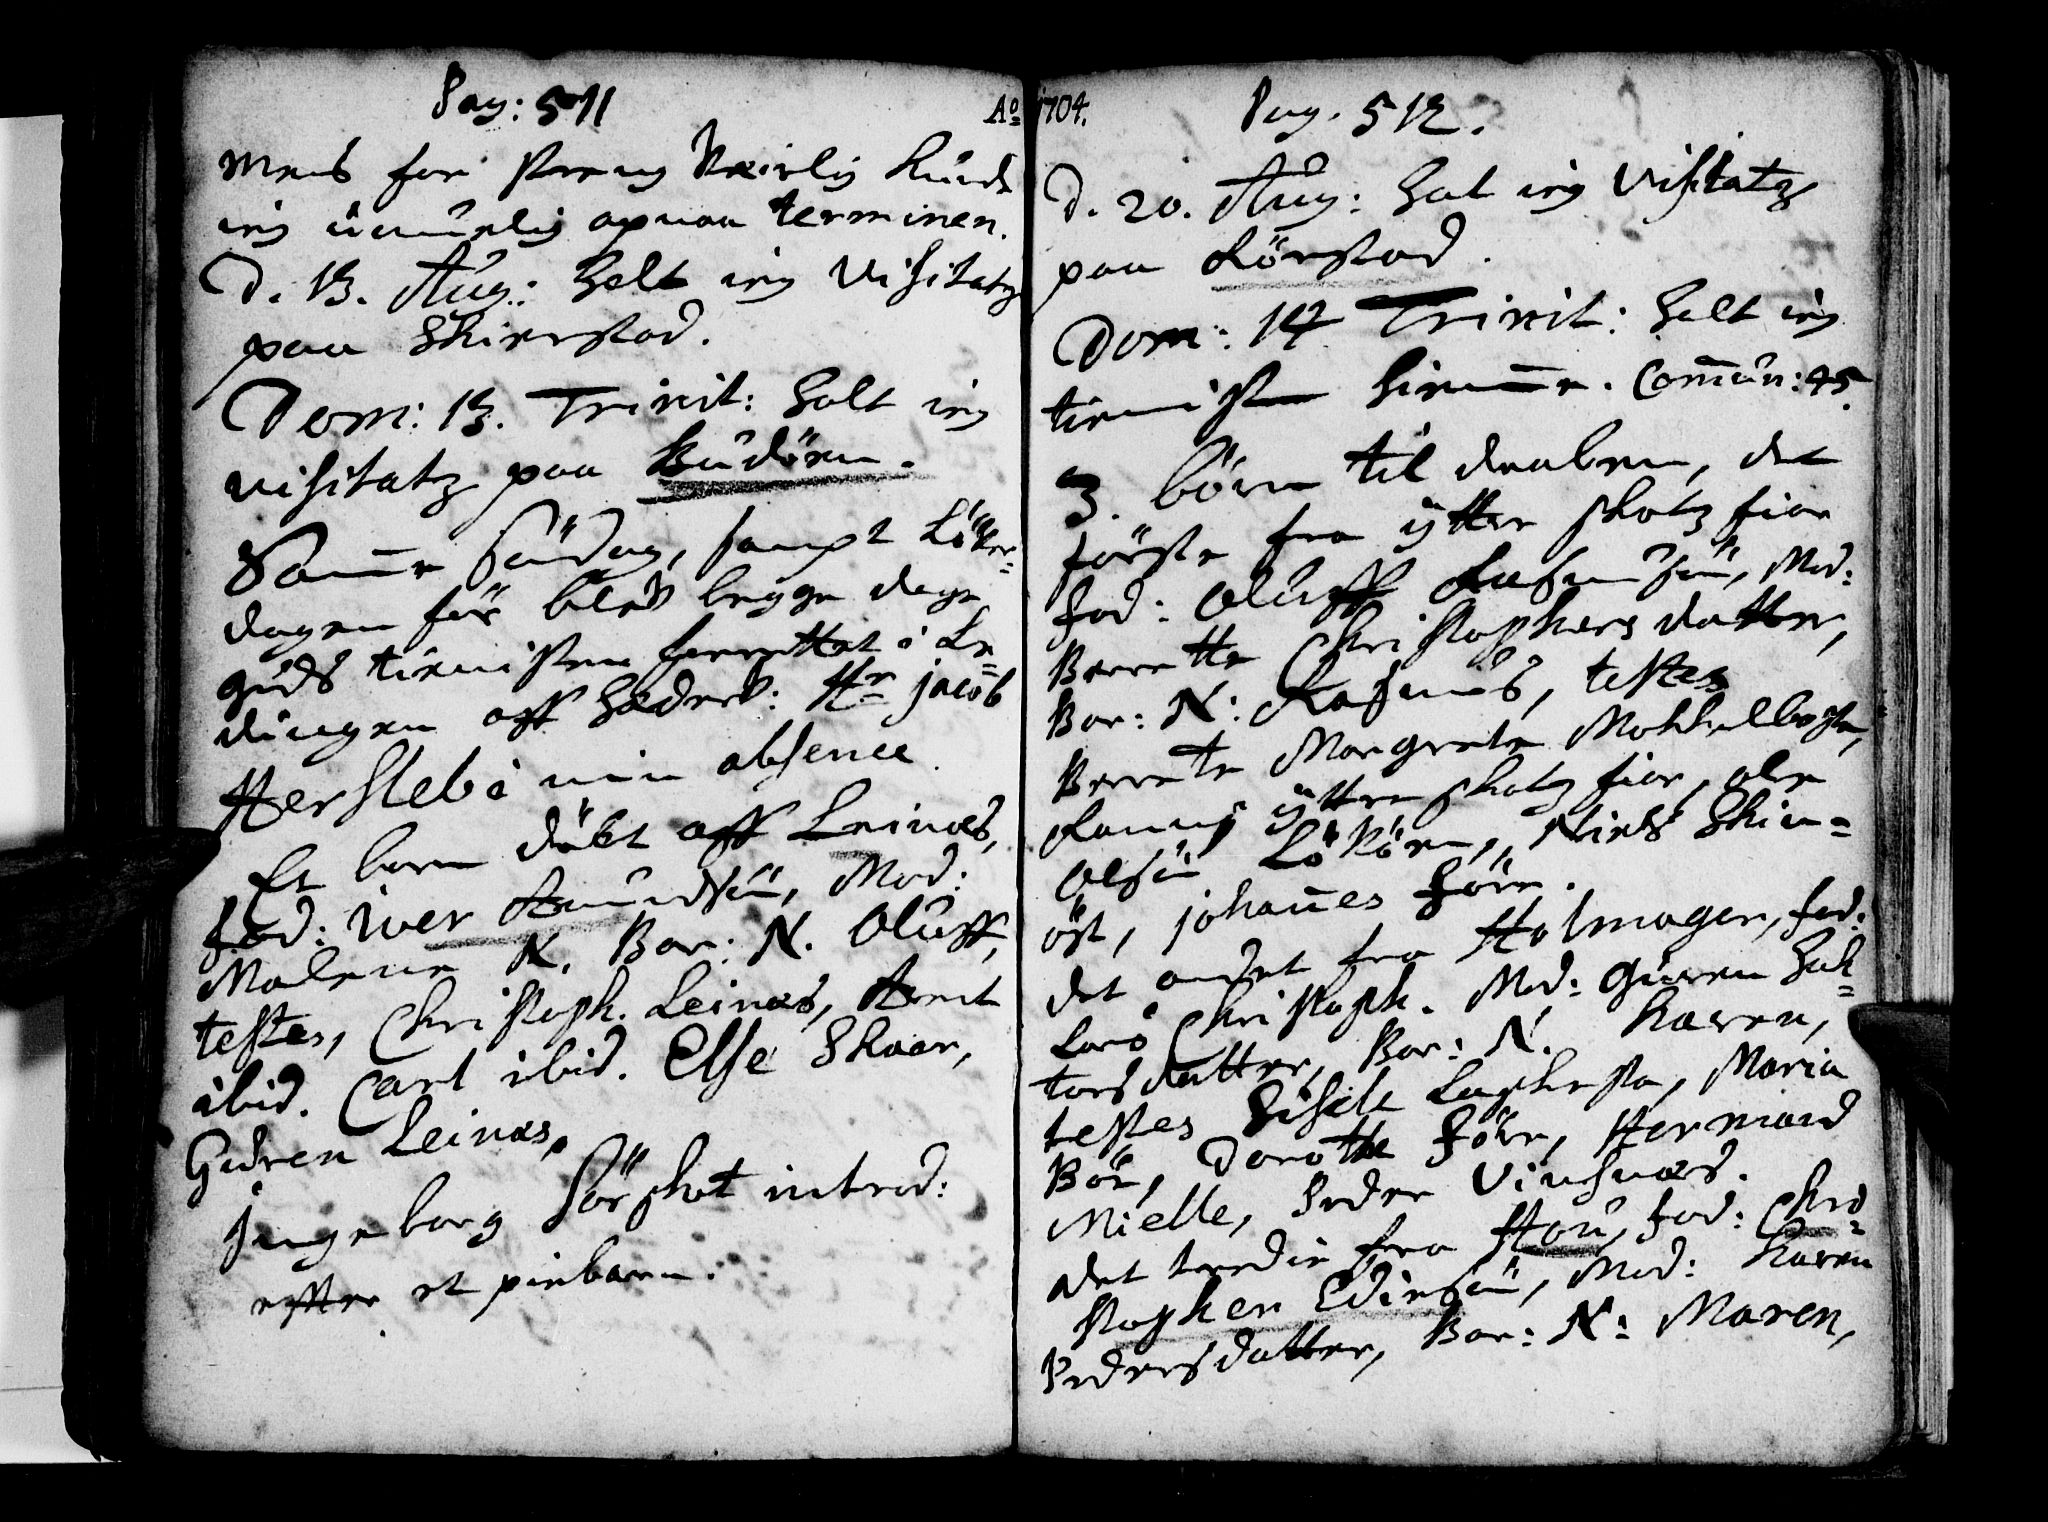 Pag: 511
mens for streng Veirlig kunde
ieg umuelig opnaa terminen.
D. 13. Aug: Holt ieg Visitatz
paa Skierstad.
Dom: 13. Trinit: Holt ieg
visitatz paa Budöen.
Samme Söndag, sampt Löffer-
dagen för bleff begge dage
Guds tienisten forrettet i Le-
dingen aff Hæderl: Hr Jacob
Hersleb i min absence.
Et barn döbt aff Leinæs,
fad: Iver Amundsön, Mod:
Malene N. Bar: N. Oluff,
testes, Christoph. Leinæs, Arent
ibid. Carl ibid. Else Skaar,
Gidren Leinæs.
Ingeborg Sörskot introd:
effter et piebarn.
Ao 1704.
Pag. 512.
D. 20. Aug: Holt ieg Visitatz
paa Rörstad.
Dom: 14 Trinit: Holt ieg
tienisten hiemme. Comun: 45.
3. börn til daaben, det
förste fra ytter skotz fior
fad: Oluff Rasmusön, Mod:
Berette Christophersdatter,
Bar: N: Rasmus, testes
Berrete Margrete
ytter skotz fior, Ole
Olsön Lökören, Niels Skin-
öst, Johannes Före.
det andet fra Holmager, fad:
Lars Christoph. Mod: Guren Hal-
torsdatter, Bar: N. Karen,
testes Sisele, Maria
Böe, Dorothe Före, Hermand
Mielle, Peder Vinsnæs.
det tredie fra Hou, fad: Chri-
stopher Ediesön, Mod: Karen
Pedersdatter, Bar: N: Maren,